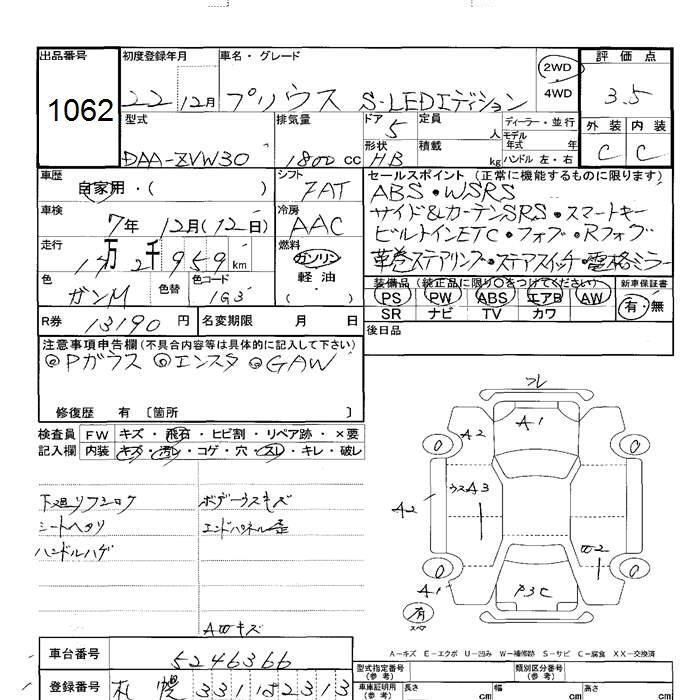 出品番号 初度登録年月 車名・グレード 2WD 評価点
1062 22 12月 プリウス S-LEDエディション 4WD 3.5
型式 排気量 ドア 5 定員 人 ディーラー・並行 外装 内装
モデル年式 年
DAA-ZVW30 1800cc 形状 HB 積載 kg ハンドル 左・右 C C
車歴 シフト セールスポイント (正常に機能するものに限ります)
自家用・( ) 7AT ABS・WSRS
車検 7年 12月(12日) 冷房 AAC サイド&カーテンSRS・スマートキー
走行 燃料 ビルトインETC・フォブ・Rフォグ
14万2千959km ガソリン 革巻ステアリング・ステアスイッチ・電格ミラー
軽油
色 ガンM 色替 色コード 1G3 ( ) 装備品 (純正品に限り○をつけてください) 新車保証書
PS PW ABS エアB AW 有・無
R券 13190円 名変期限 月 日 SR ナビ TV カワ
後日品
注意事項申告欄(不具合内容等は具体的に記入して下さい)
◎Pガラス ◎エンスタ ◎GAW
修復歴 有 〔箇所 〕
検査員 FW キズ・飛石・ヒビ割・リペア跡・×要
記入欄 内装 キズ・汚レ・コゲ・穴・スレ・キレ・破レ
下廻リフショク ボデーウスキズ
シートヘタリ エンドパネル歪
ハンドルハゲ
AWキズ
フレ
A1
A2
0 0
ウスA3
A2
W2
0 0
A1 P3C
有
スペア
A-キズ E-エクボ U-凹み W-補修跡 S-サビ C-腐食 XX-交換済
車台番号 5246366 型式指定番号(参考) 類別区分番号(参考)
登録番号 札幌331は2313 車庫証明用(参考) 長さ cm 幅 cm 高さ cm